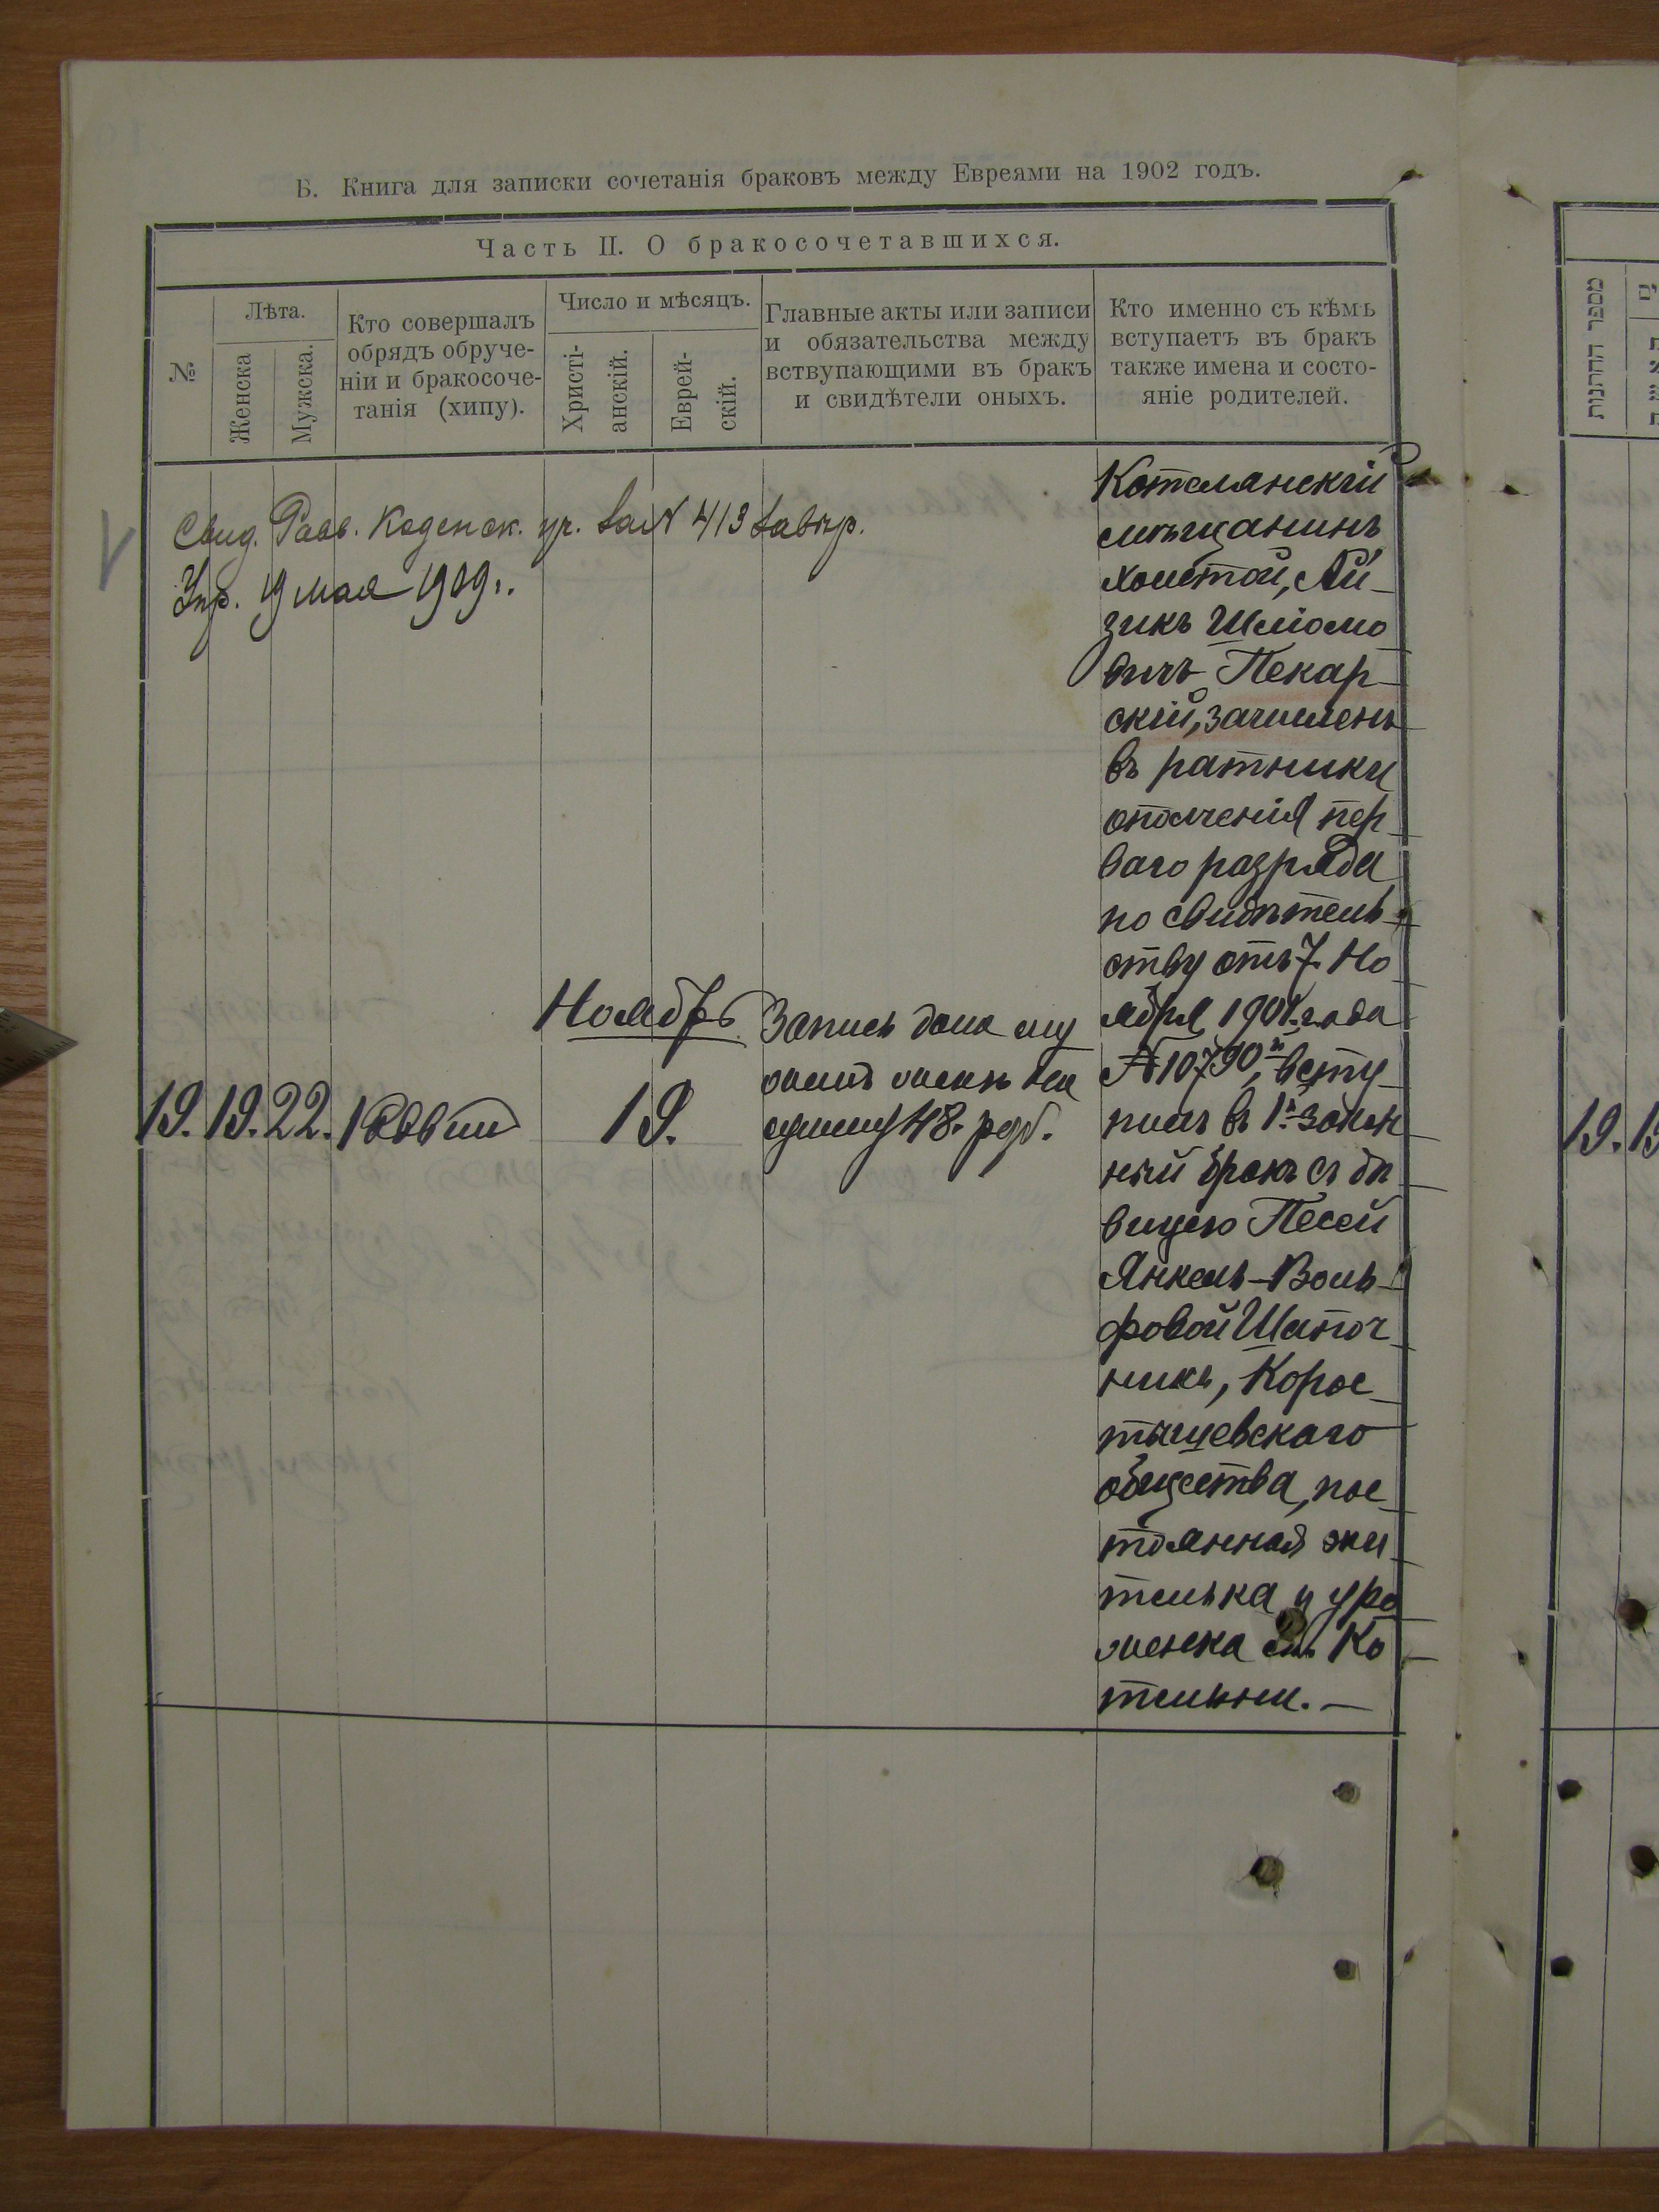 Б. Книга для записки сочетанія браковъ между Евреями на 1902 годъ.
Часть II. О бракосочетавшихся.
№
Лѣта.
Женска
Мужска.
Кто совершалъ
обрядъ обруче-
ніи и бракосоче-
танія (хипу).
Число и мѣсяцъ.
Христі-
анскій.
Еврей-
скій.
Главные акты или записи
и обязательства между
вствупающими въ бракъ
и свидѣтели оныхъ.
Кто именно съ кѣмъ
вступаетъ въ бракъ
также имена и состо-
яніе родителей.
Свид. Равв. № 413
19 мая 1909 г.
19. 19. 22. Раввин
Ноябрь
19.
Запись дана му
жемъ женѣ на
сумму 48. руб.
Котелянскій
мѣщанинъ
холстой, Ай-
зикъ Шліомо
вичъ Пекар-
скій, зачисленъ
въ ратники
ополченія пер-
ваго разряда
по свидѣтель-
ству отъ 7. Но
ября 1901. года
№ 10790, всту-
пилъ въ 1й закон
ный бракъ съ дѣ
вицею Песей
Янкель-Воль-
фовой Шапоч-
никъ, Корос-
тышевскаго
общества, пос-
тоянная жи-
телька и уро
женка Ко
тельни. —
מספר החתנות
19. 19